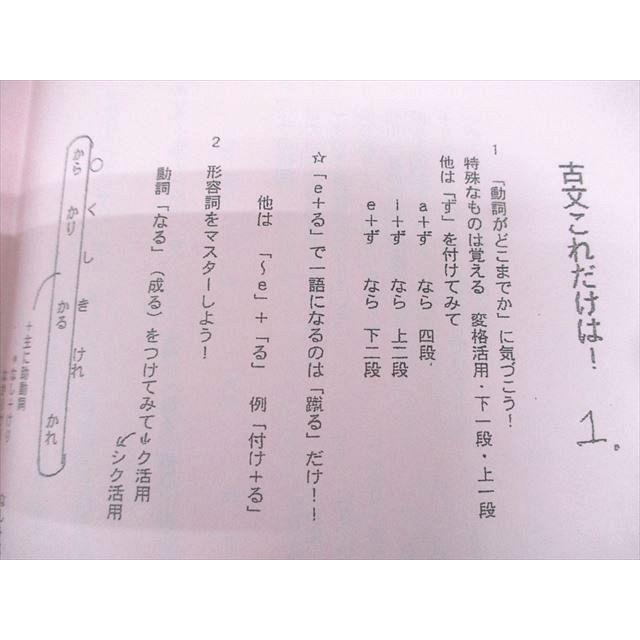 古文これだけは！ 1.
1 「動詞がどこまでか」に気づこう！
特殊なものは覚える 変格活用・下一段・上一段
他は「ず」を付けてみて
a＋ず なら 四段、
i＋ず なら 上二段
e＋ず なら 下二段
☆「e＋る」で一語になるのは「蹴る」だけ！！
他は 「～e」＋「る」 例「付け＋る」
2 形容詞をマスターしよう！
動詞「なる」（成る）をつけてみて
ク活用
シク活用
○ く し き けれ
から かり かる かれ
＋主に助動詞